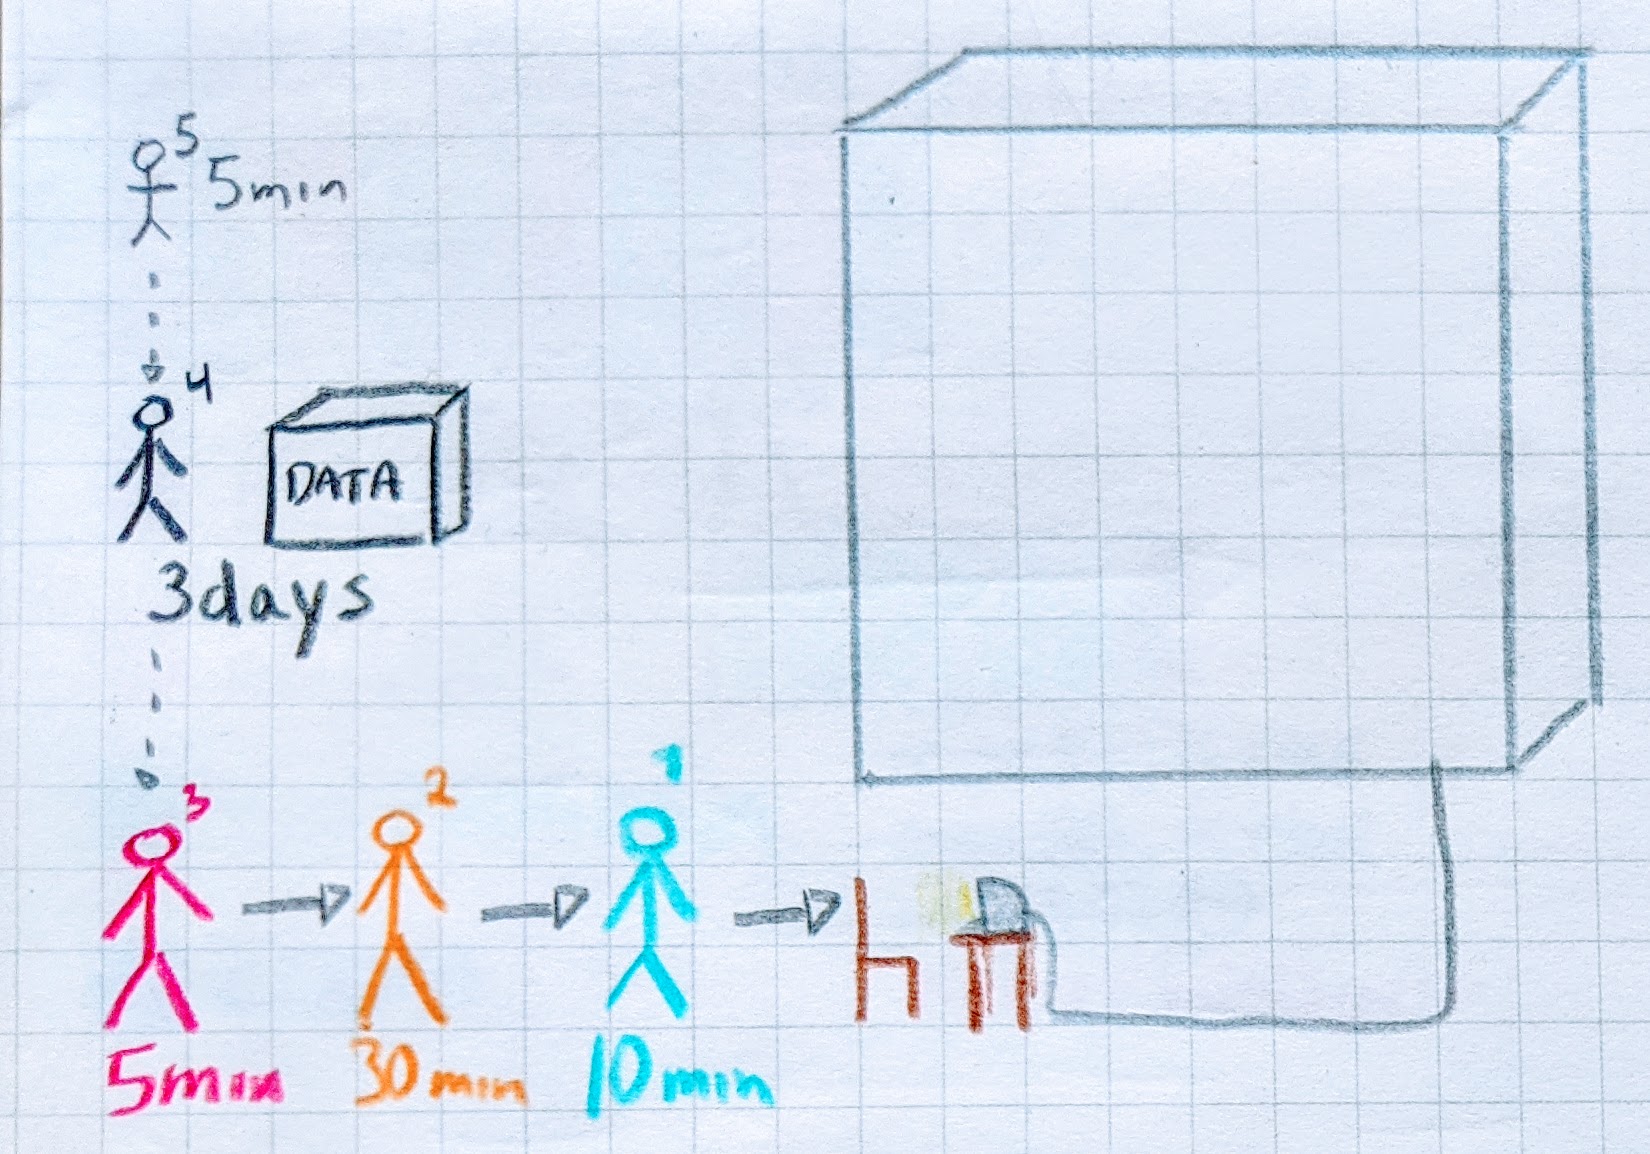 5
5min
4
DATA
3days
3
2
1
5min
30min
10min